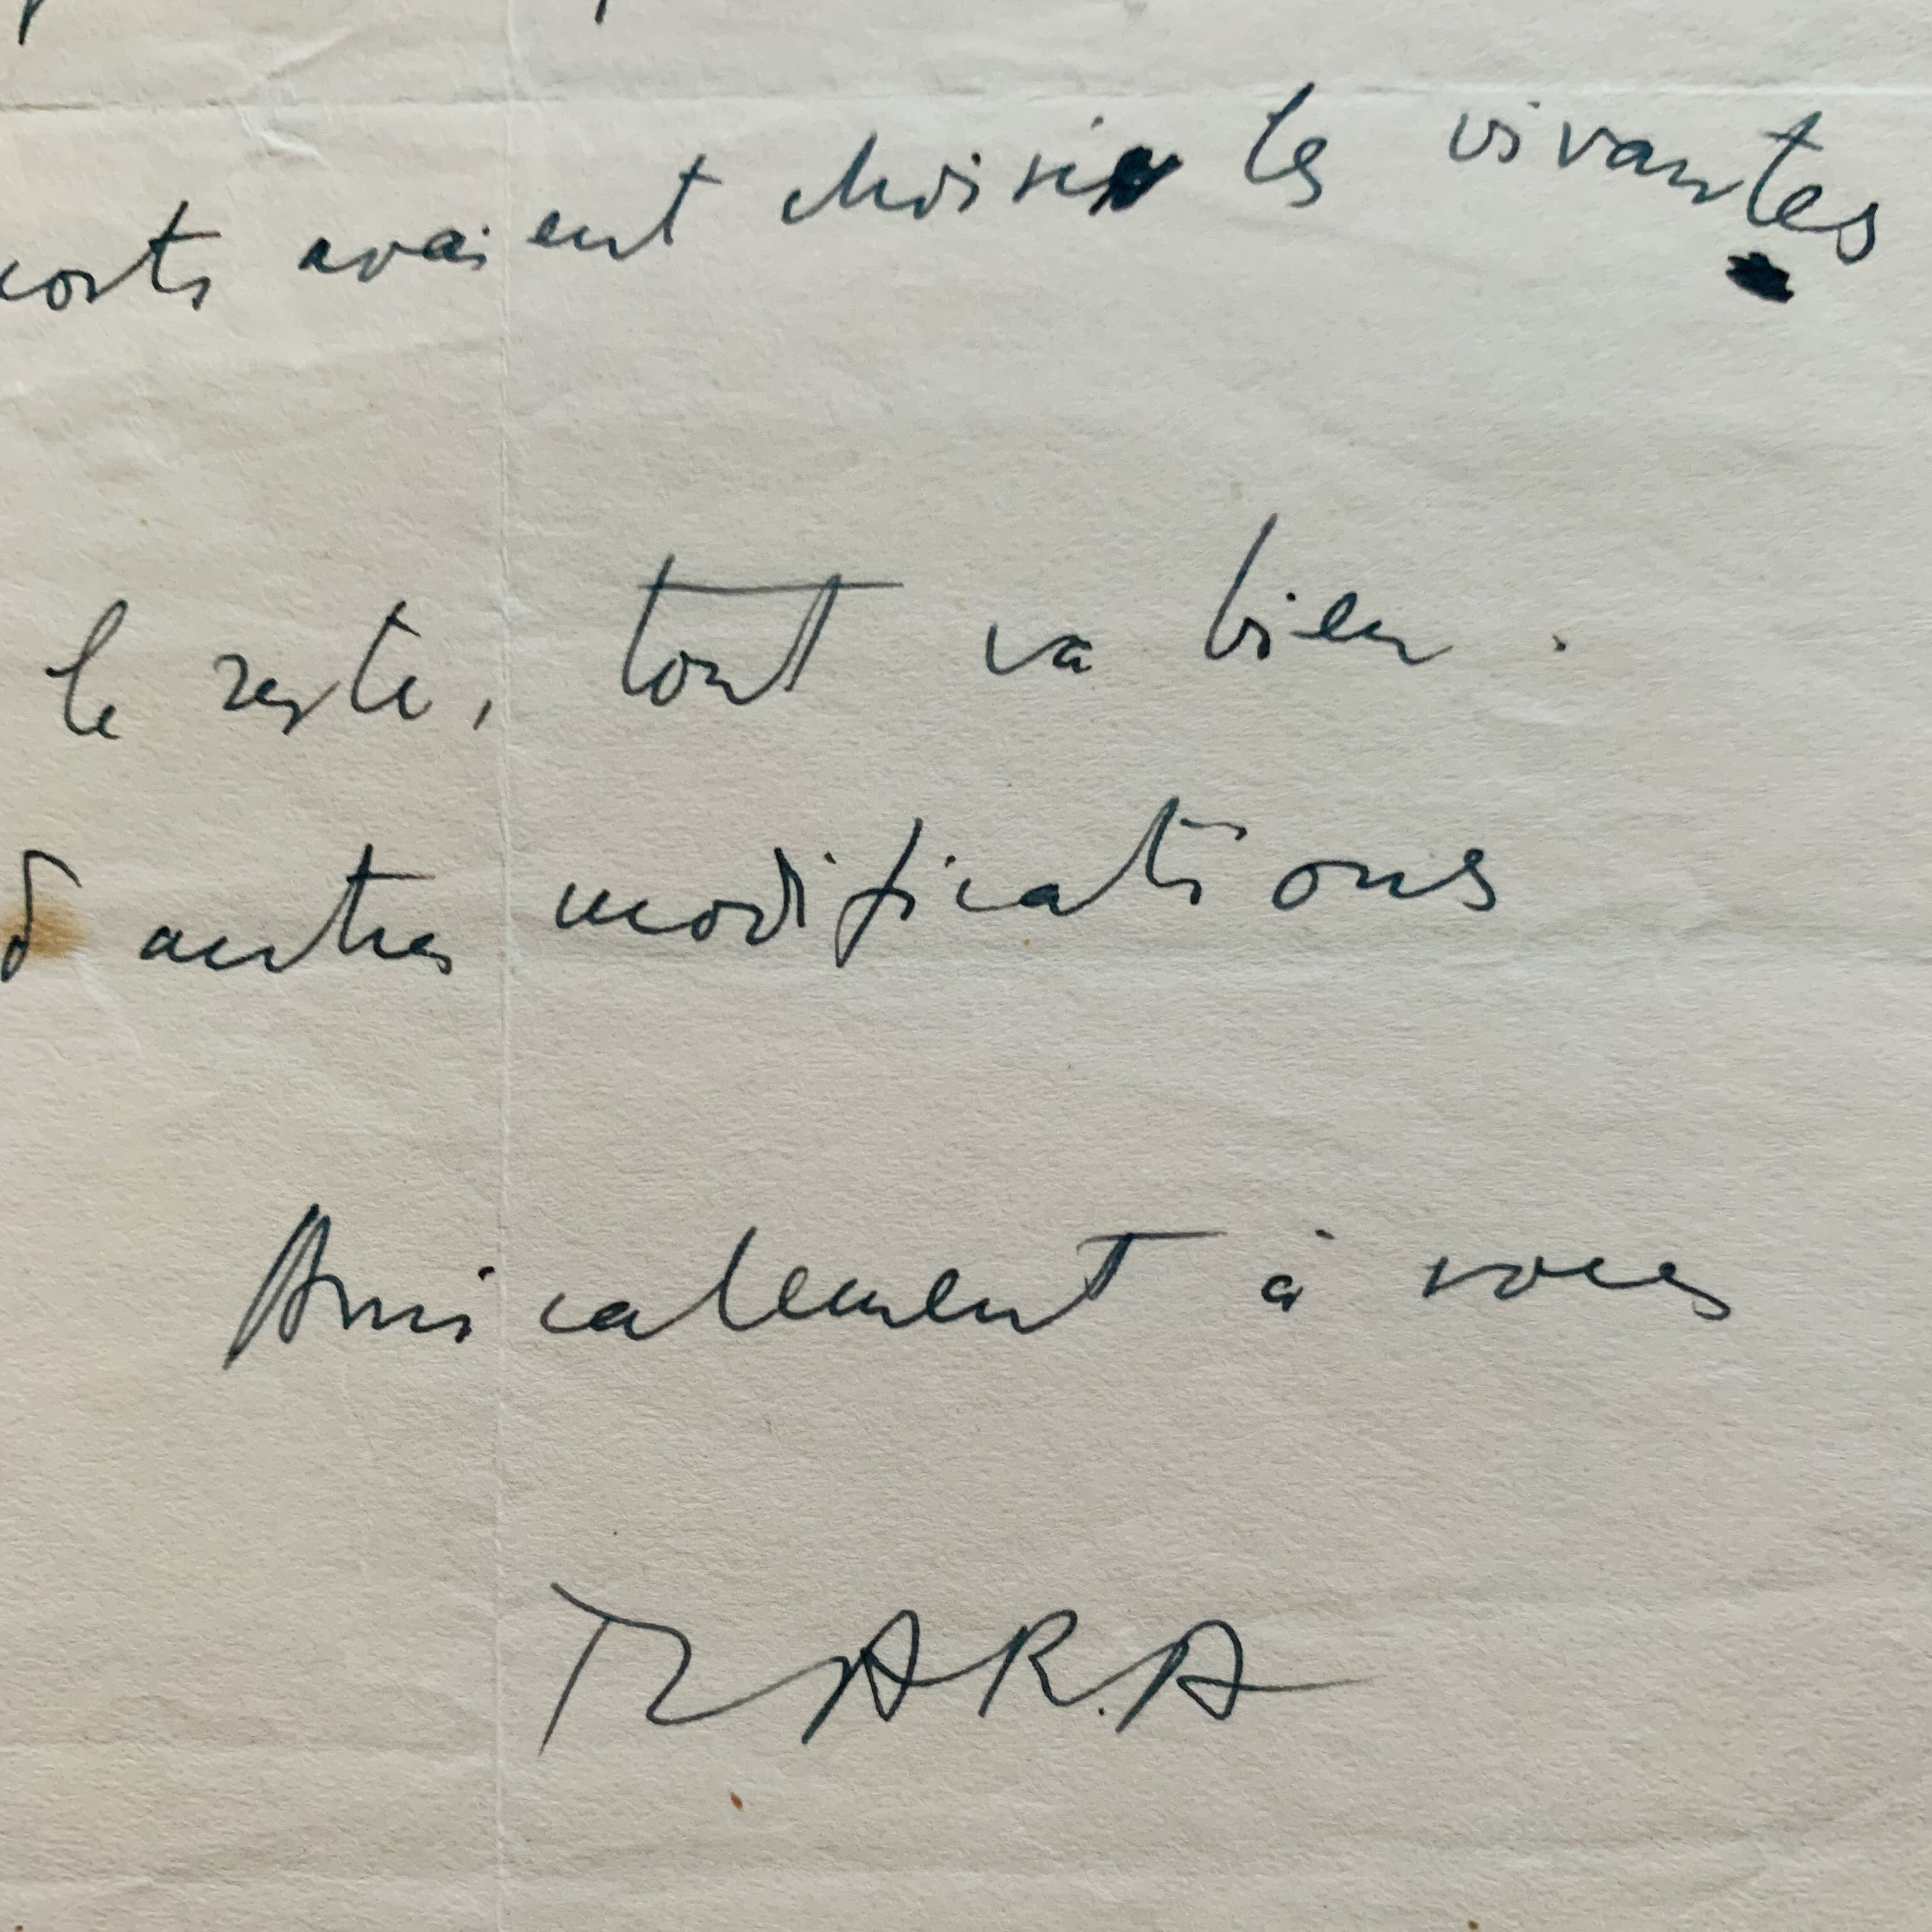 orts avaient choisi les vivantes
le reste, tout va bien.
d autres modifications
Amicalement à vous
TZARA